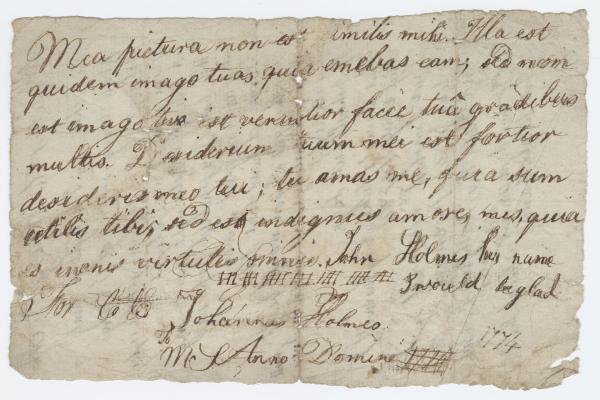 Mea pictura non est imilis mihi. Illa est
quidem imago tuas, quia emebas eam; sed non
est imago tua est venustior facie tuâ gradibus
multis. Desiderium tuum mei est fortior
desiderio meo tui; tu amas me, quia sum
utilis tibi, sed es indignus amore, meo, quia
es inanis virtutis omnis. John Holmes his name
I would be glad
For
Johannes Holmes
To
Mc S Anno Domini 1774